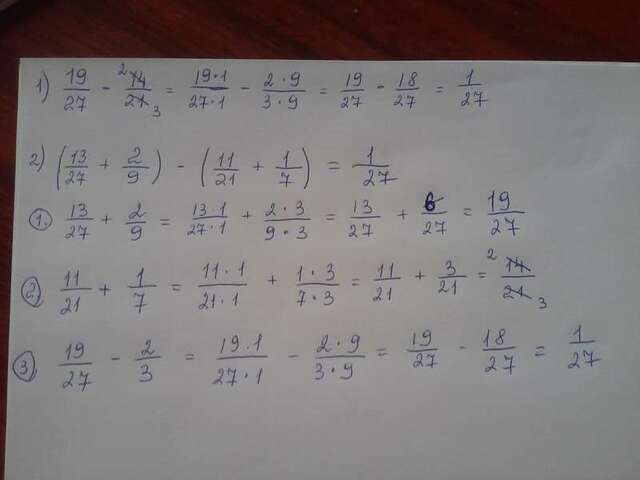 1) 19/27 - ²14/21₃ = 19·1/27·1 - 2·9/3·9 = 19/27 - 18/27 = 1/27
2) (13/27 + 2/9) - (11/21 + 1/7) = 1/27
1. 13/27 + 2/9 = 13·1/27·1 + 2·3/9·3 = 13/27 + 6/27 = 19/27
2) 11/21 + 1/7 = 11·1/21·1 + 1·3/7·3 = 11/21 + 3/21 = ²14/21₃
3) 19/27 - 2/3 = 19·1/27·1 - 2·9/3·9 = 19/27 - 18/27 = 1/27